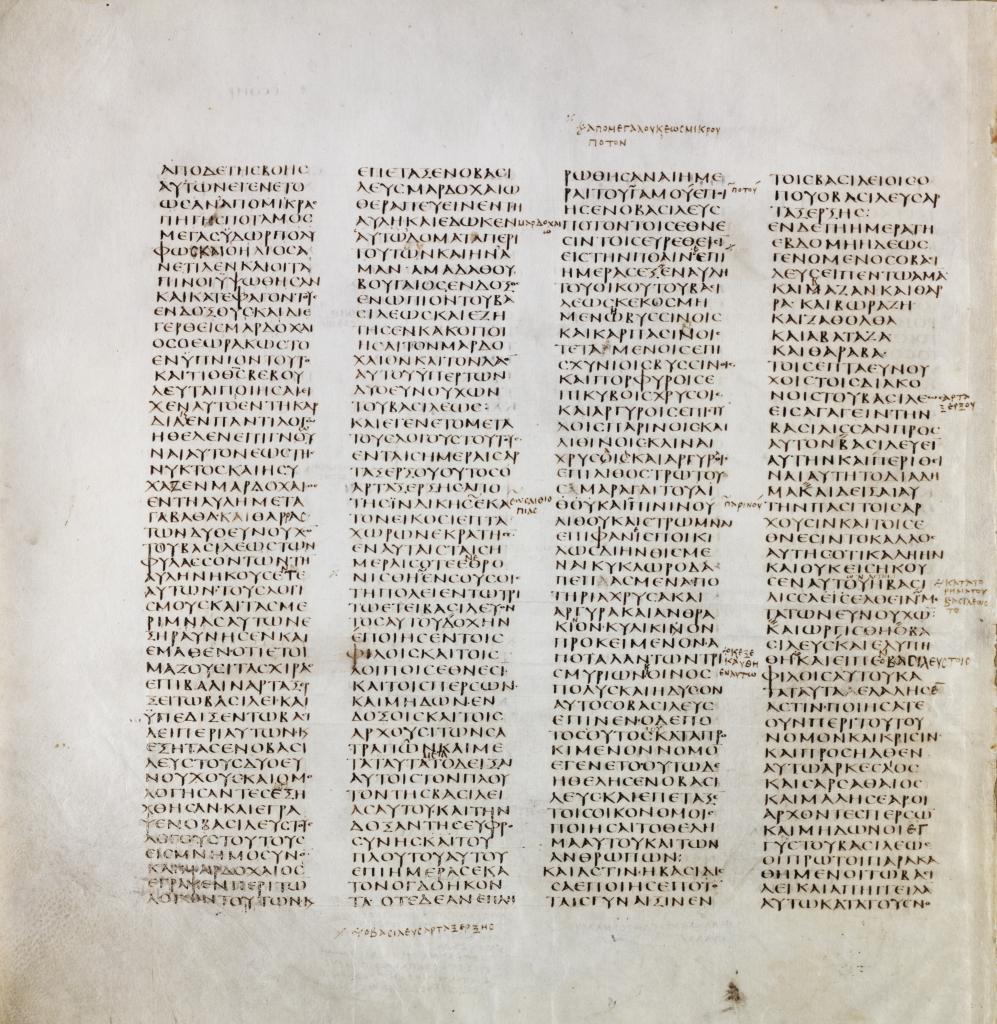 ΑΠΟΜΕΓΑΛΟΥΚΕΩΣΜΙΚΡΟΥ
ΠΟΤΟΝ
ΑΠΟΔΕΤΗϹΒΟΗϹ
ΑΥΤΩΝΕΓΕΝΕΤΟ
ΩϹΑΝΑΠΟΜΙΚΡΑ
ΠΗΓΗϹΠΟΤΑΜΟϹ
ΜΕΓΑϹΥΔΩΡΠΟΛΥ
ΦΩϹΚΑΙΟΗΛΙΟϹΑ
ΝΕΤΙΛΕΝΚΑΙΟΙΤΑ
ΠΙΝΟΙΥΨΩΘΗϹΑΝ
ΚΑΙΚΑΤΕΦΑΓΟΝΤΟΥϹ
ΕΝΔΟΞΟΥϹΚΑΙΔΙΕ
ΓΕΡΘΕΙϹΜΑΡΔΟΧΑΙ
ΟϹΟΕΩΡΑΚΩϹΤΟ
ΕΝΥΠΝΙΟΝΤΟΥΤΟ
ΚΑΙΤΙΟΘϹΒΕΒΟΥ
ΛΕΥΤΑΙΠΟΙΗϹΑΙΕΙ
ΧΕΝΑΥΤΟΕΝΤΗΚΑΡ
ΔΙΑΕΝΠΑΝΤΙΛΟΓΩ
ΗΘΕΛΕΝΕΠΙΓΝΟΥ
ΝΑΙΑΥΤΟΝΕΩϹΤΗϹ
ΝΥΚΤΟϹΚΑΙΗϹΥ
ΧΑΖΕΝΜΑΡΔΟΧΑΙΟϹ
ΕΝΤΗΑΥΛΗΜΕΤΑ
ΓΑΒΑΘΑΚΑΙΘΑΡΡΑϹ
ΤΩΝΔΥΟΕΥΝΟΥΧΩ
ΤΟΥΒΑϹΙΛΕΩϹΤΩΝ
ΦΥΛΑϹϹΟΝΤΩΝΤΗ
ΑΥΛΗΝΗΚΟΥϹΕΤΕ
ΑΥΤΩΝΤΟΥϹΛΟΓΙ
ϹΜΟΥϹΚΑΙΤΑϹΜΕ
ΡΙΜΝΑϹΑΥΤΩΝΕ
ΞΗΡΑΥΝΗϹΕΝΚΑΙ
ΕΜΑΘΕΝΟΤΙΕΤΟΙ
ΜΑΖΟΥϹΙΤΑϹΧΙΡΑϹ
ΕΠΙΒΑΛΙΝΑΡΤΑΞΕΡ
ΞΕΙΤΩΒΑϹΙΛΕΙΚΑΙ
ΥΠΕΔΙΞΕΝΤΩΒΑϹΙ
ΛΕΙΠΕΡΙΑΥΤΩΝΚΑΙ
ΕΞΗΤΑϹΕΝΟΒΑϹΙ
ΛΕΥϹΤΟΥϹΔΥΟΕΥ
ΝΟΥΧΟΥϹΚΑΙΟΜΟ
ΛΟΓΗϹΑΝΤΕϹΕΞΗ
ΧΘΗϹΑΝΚΑΙΕΓΡΑ
ΨΕΝΟΒΑϹΙΛΕΥϹΤΟΥϹ
ΛΟΓΟΥϹΤΟΥΤΟΥϹ
ΕΙϹΜΝΗΜΟϹΥΝΟΝ
ΚΑΙΜΑΡΔΟΧΑΙΟϹ
ΕΓΡΑΨΕΝΠΕΡΙΤΩ
ΛΟΓΩΝΤΟΥΤΩΝΚΑΙ
ΕΠΕΤΑΞΕΝΟΒΑϹΙ
ΛΕΥϹΜΑΡΔΟΧΑΙΩ
ΘΕΡΑΠΕΥΕΙΝΕΝΤΗ
ΑΥΛΗΚΑΙΕΔΩΚΕΝ ΜΑΡΔΟΧΑΙΩ
ΑΥΤΩΔΟΜΑΤΑΠΕΡΙ
ΤΟΥΤΩΝΚΑΙΗΝΑ
ΜΑΝΑΜΑΔΑΘΟΥ
ΒΟΥΓΑΙΟϹΕΝΔΟΞΟϹ
ΕΝΩΠΙΟΝΤΟΥΒΑ
ϹΙΛΕΩϹΚΑΙΕΖΗ
ΤΗϹΕΝΚΑΚΟΠΟΙ
ΗϹΑΙΤΟΝΜΑΡΔΟ
ΧΑΙΟΝΚΑΙΤΟΝΛΑΟ
ΑΥΤΟΥΥΠΕΡΤΩΝ
ΔΥΟΕΥΝΟΥΧΩΝ
ΤΟΥΒΑϹΙΛΕΩϹ:
ΚΑΙΕΓΕΝΕΤΟΜΕΤΑ
ΤΟΥϹΛΟΓΟΥϹΤΟΥΤΟΥϹ
ΕΝΤΑΙϹΗΜΕΡΑΙϹΑΡ
ΤΑΞΕΡΞΟΥΟΥΤΟϹΟ
ΑΡΤΑΞΕΡΞΗϹΑΠΟ
ΤΗϹΪΝΔΙΚΗϹΕΚΑ ΕΩϹΑΙΘΙΟΠΙΑϹ
ΤΟΝΕΙΚΟϹΙΕΠΤΑ
ΧΩΡΩΝΕΚΡΑΤΗϹΕ
ΕΝΑΥΤΑΙϹΤΑΙϹΗ
ΜΕΡΑΙϹΟΤΕΕΘΡΟ
ΝΙϹΘΗΕΝϹΟΥϹΟΙϹ
ΤΗΠΟΛΕΙΕΝΤΩΤΡΙ
ΤΩΕΤΕΙΒΑϹΙΛΕΥΟΝ
ΤΟϹΑΥΤΟΥΔΟΧΗΝ
ΕΠΟΙΗϹΕΝΤΟΙϹ
ΦΙΛΟΙϹΚΑΙΤΟΙϹ
ΛΟΙΠΟΙϹΕΘΝΕϹΙ
ΚΑΙΤΟΙϹΠΕΡϹΩΝ
ΚΑΙΜΗΔΩΝΕΝ
ΔΟΞΟΙϹΚΑΙΤΟΙϹ
ΑΡΧΟΥϹΙΤΩΝϹΑ
ΤΡΑΠΩΝΚΑΙΜΕ
ΤΑΤΑΥΤΑΤΟΔΕΙΞΑΙ
ΑΥΤΟΙϹΤΟΝΠΛΟΥ
ΤΟΝΤΗϹΒΑϹΙΛΕΙ
ΑϹΑΥΤΟΥΚΑΙΤΗΝ
ΔΟΞΑΝΤΗϹΕΥΦΡΟ
ϹΥΝΗϹΚΑΙΤΟΥ
ΠΛΟΥΤΟΥΑΥΤΟΥ
ΕΠΙΗΜΕΡΑϹΕΚΑ
ΤΟΝΟΓΔΟΗΚΟΝ
ΤΑΟΤΕΔΕΑΝΕΠΛΗ
ΡΩΘΗϹΑΝΑΙΗΜΕ
ΡΑΙΤΟΥΓΑΜΟΥΕΠΟΙ ΠΟΤΟΥ
ΗϹΕΝΟΒΑϹΙΛΕΥϹ
ΠΟΤΟΝΤΟΙϹΕΘΝΕ
ϹΙΝΤΟΙϹΕΥΡΕΘΕΙϹΙ
ΕΙϹΤΗΝΠΟΛΙΝΕΠΙ
ΗΜΕΡΑϹΕΞΕΝΑΥΛΗ
ΤΟΥΟΙΚΟΥΤΟΥΒΑϹΙ
ΛΕΩϹΚΕΚΟϹΜΗ
ΜΕΝΩΒΥϹϹΙΝΟΙϹ
ΚΑΙΚΑΡΠΑϹΙΝΟΙϹ
ΤΕΤΑΜΕΝΟΙϹΕΠΙ
ϹΧΥΝΙΟΙϹΒΥϹϹΙΝΟΙϹ
ΚΑΙΠΟΡΦΥΡΟΙϹΕ
ΠΙΚΥΒΟΙϹΧΡΥϹΟΙϹ
ΚΑΙΑΡΓΥΡΟΙϹΕΠΙϹΤΥ
ΛΟΙϹΠΑΡΙΝΟΙϹΚΑΙ
ΛΙΘΙΝΟΙϹΚΛΙΝΑΙ
ΧΡΥϹΑΙϹΚΑΙΑΡΓΥΡΑΙ
ΕΠΙΛΙΘΟϹΤΡΩΤΟΥ
ϹΜΑΡΑΓΔΙΤΟΥΛΙ
ΘΟΥΚΑΙΠΙΝΙΝΟΥ ΠΑΡΙΝΟΥ
ΛΙΘΟΥΚΑΙϹΤΡΩΜΝΑΙ
ΕΠΙΦΑΝΙϹΠΟΙΚΙ
ΛΩϹΔΙΗΝΘΙϹΜΕ
ΝΑΙΚΥΚΛΩΡΟΔΑ
ΠΕΠΑϹΜΕΝΑΠΟ
ΤΗΡΙΑΧΡΥϹΑΚΑΙ
ΑΡΓΥΡΑΚΑΙΑΝΘΡΑ
ΚΙΟΝΚΥΛΙΚΙΝΟΝ
ΠΡΟΚΕΙΜΕΝΟΝΑ
ΠΟΤΑΛΑΝΤΩΝΤΡΙ
ϹΜΥΡΙΩΝΟΙΝΟϹ
ΠΟΛΥϹΚΑΙΗΔΥϹΟΝ
ΑΥΤΟϹΟΒΑϹΙΛΕΥϹ
ΕΠΙΝΕΝΟΔΕΠΟ
ΤΟϹΟΥΤΟϹΚΑΤΑΠΡΟ
ΚΙΜΕΝΟΝΝΟΜΟ
ΕΓΕΝΕΤΟΟΥΤΩΔΕ
ΗΘΕΛΗϹΕΝΟΒΑϹΙ
ΛΕΥϹΚΑΙΕΠΕΤΑΞΕ
ΤΟΙϹΟΙΚΟΝΟΜΟΙϹ
ΠΟΙΗϹΑΙΤΟΘΕΛΗ
ΜΑΑΥΤΟΥΚΑΙΤΩΝ
ΑΝΘΡΩΠΩΝ:
ΚΑΙΑϹΤΙΝΗΒΑϹΙΛΙϹ
ϹΑΕΠΟΙΗϹΕΠΟΤΟΝ
ΤΑΙϹΓΥΝΑΙΞΙΝΕΝ
ΤΟΙϹΒΑϹΙΛΕΙΟΙϹΟ
ΠΟΥΟΒΑϹΙΛΕΥϹΑΡ
ΤΑΞΕΡΞΗϹ:
ΕΝΔΕΤΗΗΜΕΡΑΤΗ
ΕΒΔΟΜΗΗΔΕΩϹ
ΓΕΝΟΜΕΝΟϹΟΒΑϹΙ
ΛΕΥϹΕΙΠΕΝΤΩΑΜΑ
ΚΑΙΜΑΖΑΝΚΑΙΘΑΡ
ΡΑΚΑΙΒΩΡΑΖΗ
ΚΑΙΖΑΘΟΛΘΑ
ΚΑΙΑΒΑΤΑΖΑ
ΚΑΙΘΑΡΑΒΑ
ΤΟΙϹΕΠΤΑΕΥΝΟΥ
ΧΟΙϹΤΟΙϹΔΙΑΚΟ
ΝΟΙϹΤΟΥΒΑϹΙΛΕΩϹ ΑΡΤΑΞΕΡΞΟΥ
ΕΙϹΑΓΑΓΕΙΝΤΗΝ
ΒΑϹΙΛΙϹϹΑΝΠΡΟϹ
ΑΥΤΟΝΒΑϹΙΛΕΥΕΙ
ΑΥΤΗΝΚΑΙΠΕΡΙΘΙ
ΝΑΙΑΥΤΗΤΟΔΙΑΔΗ
ΜΑΚΑΙΔΕΙΞΑΙΑΥ
ΤΗΝΠΑϹΙΤΟΙϹΑΡ
ΧΟΥϹΙΝΚΑΙΤΟΙϹΕ
ΘΝΕϹΙΝΤΟΚΑΛΛΟϹ
ΑΥΤΗϹΟΤΙΚΑΛΗΗΝ
ΚΑΙΟΥΚΕΙϹΗΚΟΥ
ϹΕΝΑΥΤΟΥΗΒΑϹΙ
ΛΙϹϹΑΕΙϹΕΛΘΕΙΝΜΕ
ΤΑΤΩΝΕΥΝΟΥΧΩ:
ΚΑΙΩΡΓΙϹΘΗΟΒΑ
ϹΙΛΕΥϹΚΑΙΕΛΥΠΗ
ΘΗΚΑΙΕΙΠΕ ΟΒΑϹΙΛΕΥϹΤΟΙϹ
ΦΙΛΟΙϹΑΥΤΟΥΚΑ
ΤΑΤΑΥΤΑΕΛΑΛΗϹΕ
ΑϹΤΙΝΠΟΙΗϹΑΤΕ
ΟΥΝΠΕΡΙΤΟΥΤΟΥ
ΝΟΜΟΝΚΑΙΚΡΙϹΙΝ
ΚΑΙΠΡΟϹΗΛΘΕΝ
ΑΥΤΩΑΡΚΕϹΑΙΟϹ
ΚΑΙϹΑΡϹΑΘΑΙΟϹ
ΚΑΙΜΑΛΗϹΕΑΡΟΙ
ΑΡΧΟΝΤΕϹΠΕΡϹΩ
ΚΑΙΜΗΔΩΝΟΙΕΓ
ΓΥϹΤΟΥΒΑϹΙΛΕΩϹ
ΟΙΠΡΩΤΟΙΠΑΡΑΚΑ
ΘΗΜΕΝΟΙΤΩΒΑϹΙ
ΛΕΙΚΑΙΑΠΗΓΓΕΙΛΑ
ΑΥΤΩΚΑΤΑΤΟΥϹΝΟ
ΟΒΑϹΙΛΕΥϹΑΡΤΑΞΕΡΞΗϹ